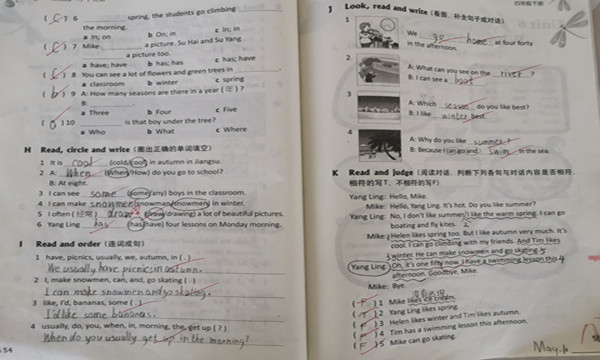 ( C ) 6 ______ spring, the students go climbing ______
the morning.
a In; on b On; in c In; in
7 Mike ______ a picture. Su Hai and Su Yang
______ a picture too.
a have; have b has; has c has; have
8 You can see a lot of flowers and green trees in ______
a classroom b winter c spring
( b ) 9 A: How many seasons are there in a year (年)?
B: ______.
a Three b Four c Five
10 ______ is that boy under the tree?
a Who b What c Where
H Read, circle and write (圈出正确的单词填空)
1 It is cool (cold/cool) in autumn in Jiangsu.
2 A: When (When/How) do you go to school?
B: At eight.
3 I can see some (some/any) boys in the classroom.
4 I can make snowmen (snowman/snowmen) in winter.
5 I often (经常) draw (draw/drawing) a lot of beautiful pictures.
6 Yang Ling has (has/have) four lessons on Monday morning.
I Read and order (连词成句)
1 have, picnics, usually, we, autumn, in (.)
We usually have picnics in autumn.
2 I, make snowmen, can, and, go skating (.)
I can make snowmen and go skating.
3 like, I'd, bananas, some (.)
I'd like some bananas.
4 usually, do, you, when, in, morning, the, get up (?)
When do you usually get up in the morning?
54
四年级下册
J Look, read and write (看图，补全句子或对话)
1
We go home at four forty
in the afternoon.
2
A: What can you see on the river ?
B: I can see a boat
3
A: Which season do you like best?
B: I like winter best.
4
A: Why do you like summer ?
B: Because I can go and swim in the sea.
K Read and judge (阅读对话，判断下列各句与对话内容是否相符，
相符的写T，不相符的写F)
Yang Ling: Hello, Mike.
Mike: Hello, Yang Ling. It's hot. Do you like summer?
Yang Ling: No, I don't like summer. I like the warm spring. I can go
boating and fly kites. 2
Mike: Helen likes spring too. But I like autumn very much. It's
cool. I can go climbing with my friends. And Tim likes
winter. He can make snowmen and go skating.
Yang Ling: Oh, it's one fifty now. I have a swimming lesson this
afternoon. Goodbye, Mike.
Mike: Bye.
1 Mike likes ice cream.
2 Yang Ling likes spring.
3 Helen likes winter and Tim likes autumn.
4 Tim has a swimming lesson this afternoon.
5 Mike can go skating.